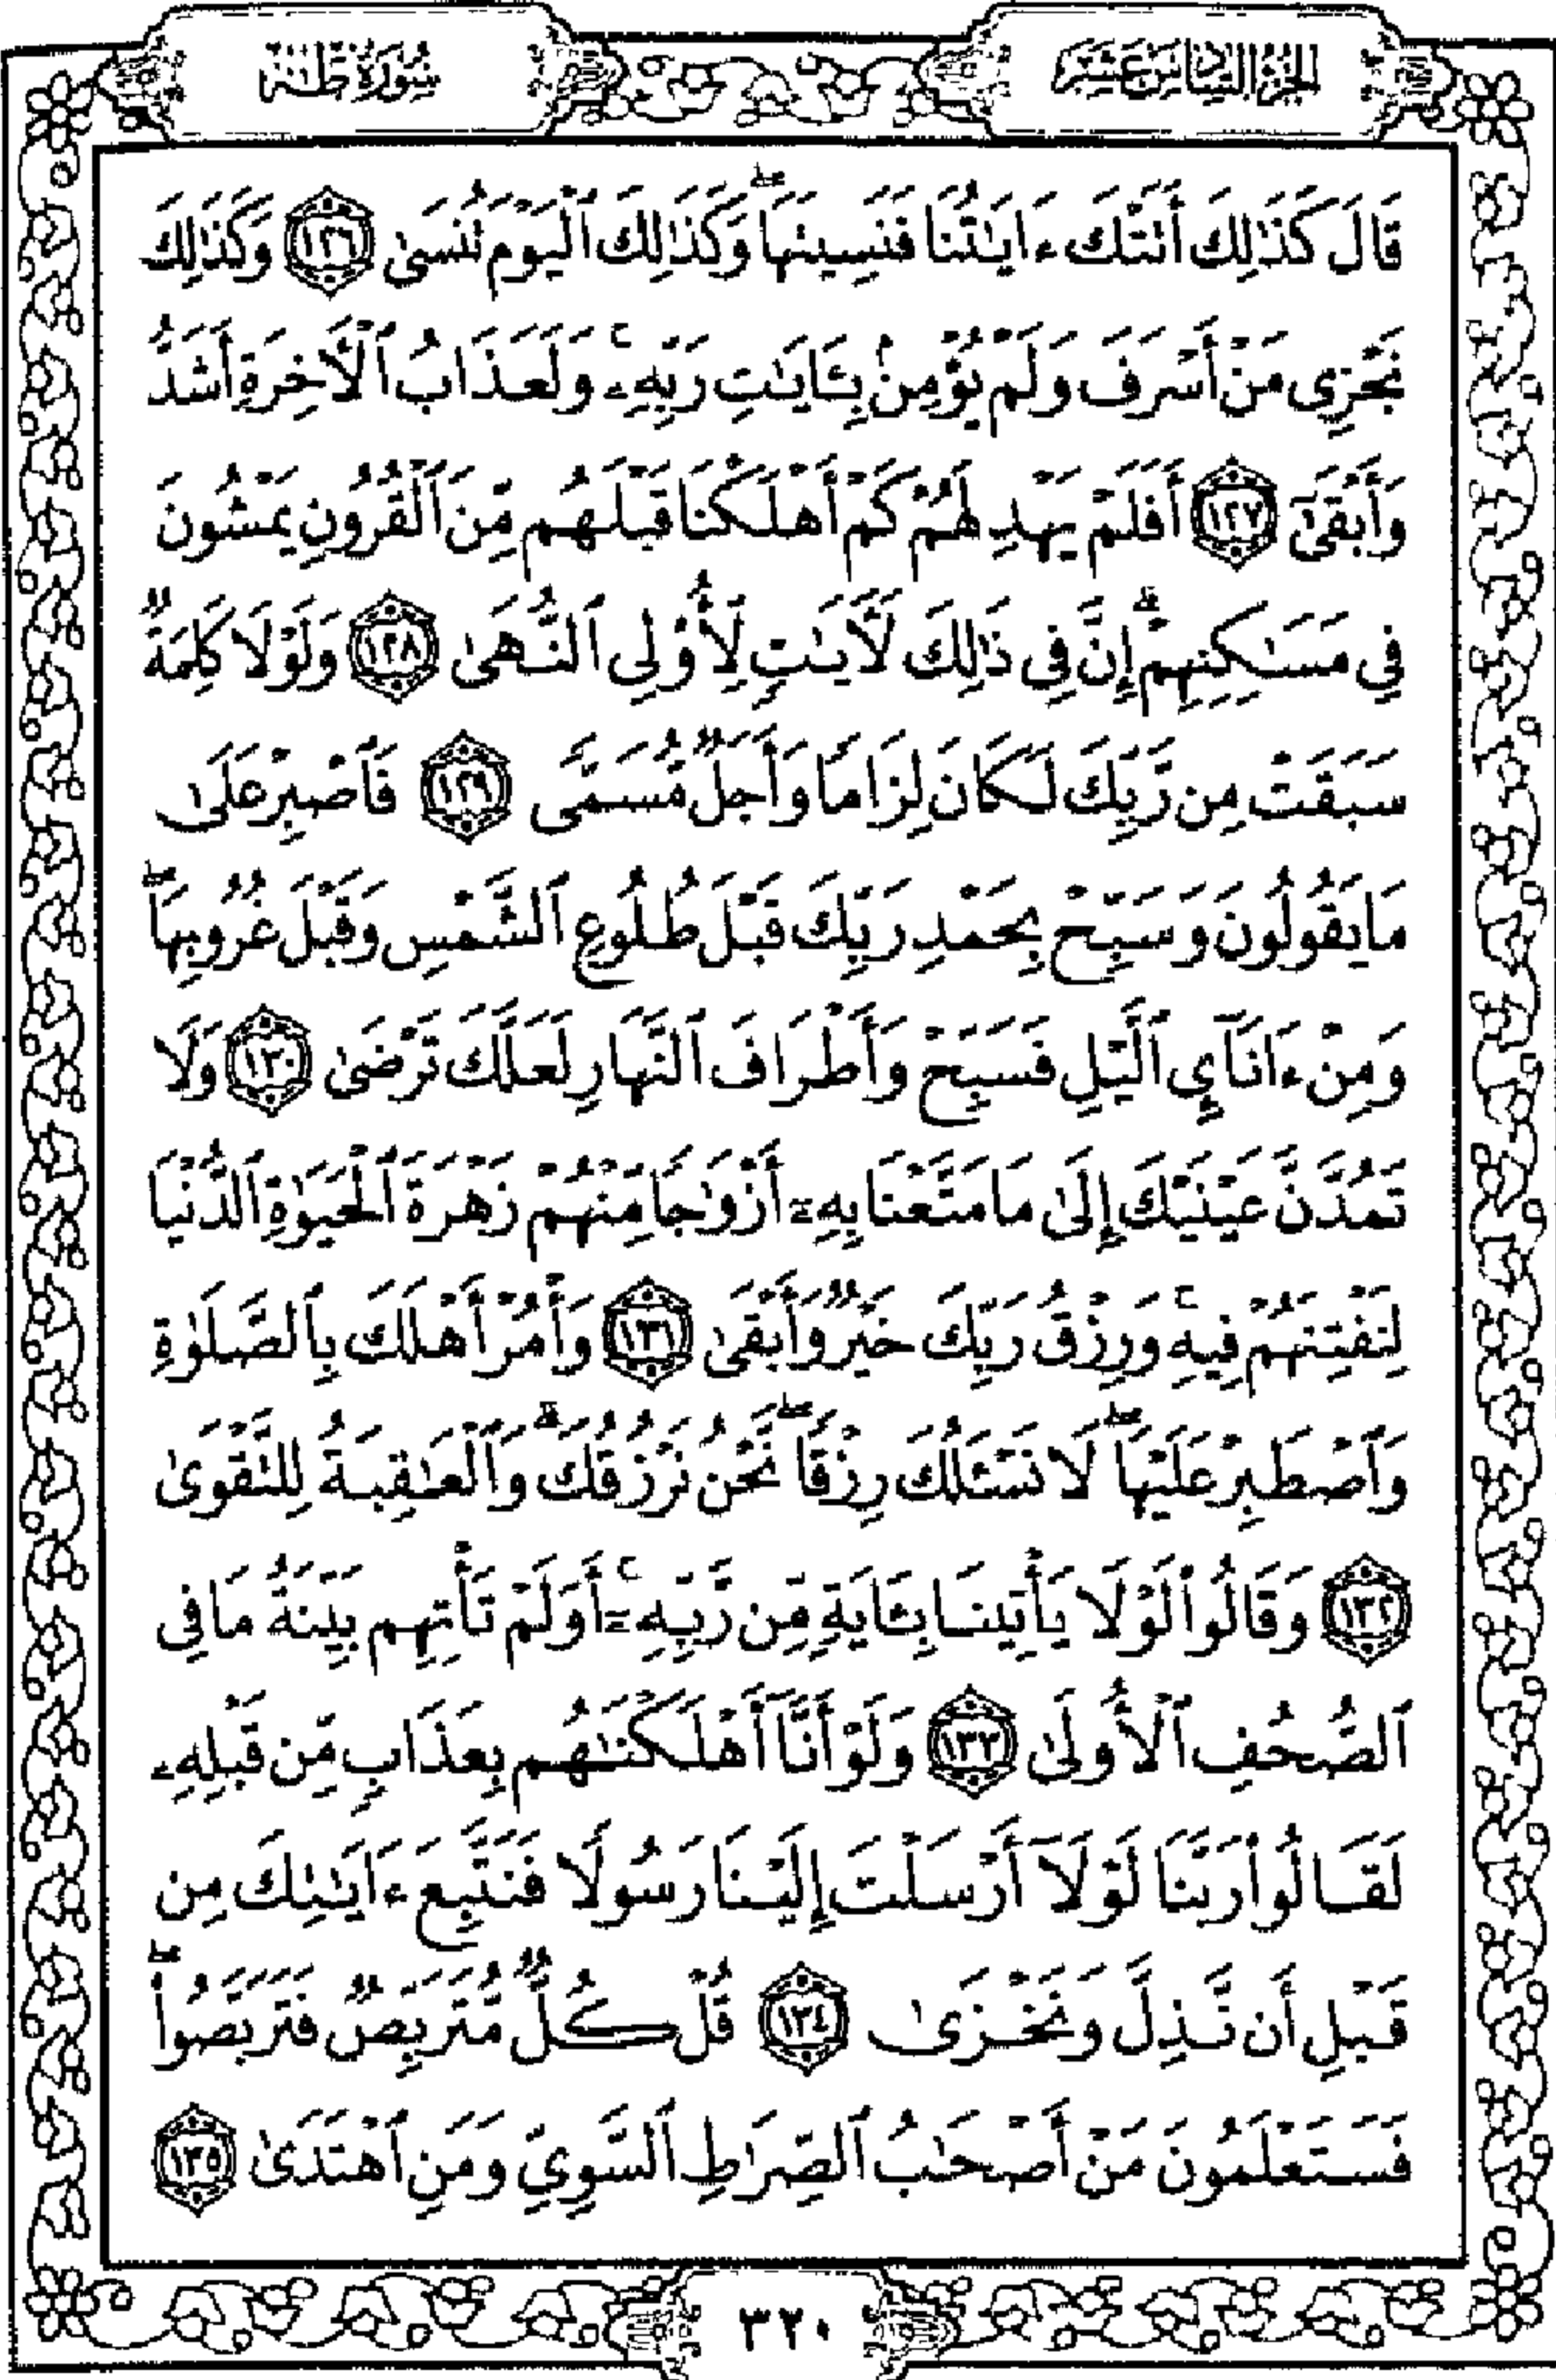 الجزء السادس عشر
سورة طه
قَالَ كَذَٰلِكَ أَتَتْكَ ءَايَٰتُنَا فَنَسِينَهَا ۖ وَكَذَٰلِكَ ٱلْيَوْمَ تُنسَىٰ ١٢٦ وَكَذَٰلِكَ
نَجْزِى مَنْ أَسْرَفَ وَلَمْ يُؤْمِنۢ بِـَٔايَٰتِ رَبِّهِۦ ۚ وَلَعَذَابُ ٱلْأَخِرَةِ أَشَدُّ
وَأَبْقَىٰٓ ١٢٧ أَفَلَمْ يَهْدِ لَهُمْ كَمْ أَهْلَكْنَا قَبْلَهُم مِّنَ ٱلْقُرُونِ يَمْشُونَ
فِي مَسَٰكِنِهِمْ ۗ إِنَّ فِي ذَٰلِكَ لَأَيَٰتٍ لِّأُو۟لِي ٱلنُّهَىٰ ١٢٨ وَلَوْلَا كَلِمَةٌ
سَبَقَتْ مِن رَّبِّكَ لَكَانَ لِزَامًا وَأَجَلٌ مُّسَمًّى ١٢٩ فَٱصْبِرْ عَلَىٰ
مَا يَقُولُونَ وَسَبِّحْ بِحَمْدِ رَبِّكَ قَبْلَ طُلُوعِ ٱلشَّمْسِ وَقَبْلَ غُرُوبِهَا ۖ
وَمِنْ ءَانَآئِ ٱلَّيْلِ فَسَبِّحْ وَأَطْرَافَ ٱلنَّهَارِ لَعَلَّكَ تَرْضَىٰ ١٣٠ وَلَا
تَمُدَّنَّ عَيْنَيْكَ إِلَىٰ مَا مَتَّعْنَا بِهِۦٓ أَزْوَٰجًا مِّنْهُمْ زَهْرَةَ ٱلْحَيَوٰةِ ٱلدُّنْيَا
لِنَفْتِنَهُمْ فِيهِ ۚ وَرِزْقُ رَبِّكَ خَيْرٌ وَأَبْقَىٰ ١٣١ وَأْمُرْ أَهْلَكَ بِٱلصَّلَوٰةِ
وَٱصْطَبِرْ عَلَيْهَا ۖ لَا نَسْـَٔلُكَ رِزْقًا ۖ نَّحْنُ نَرْزُقُكَ ۗ وَٱلْعَٰقِبَةُ لِلتَّقْوَىٰ
١٣٢ وَقَالُوا۟ لَوْلَا يَأْتِينَا بِـَٔايَةٍ مِّن رَّبِّهِۦٓ ۚ أَوَلَمْ تَأْتِهِم بَيِّنَةُ مَا فِي
ٱلصُّحُفِ ٱلْأُولَىٰ ١٣٣ وَلَوْ أَنَّآ أَهْلَكْنَٰهُم بِعَذَابٍ مِّن قَبْلِهِۦ
لَقَالُوا۟ رَبَّنَا لَوْلَآ أَرْسَلْتَ إِلَيْنَا رَسُولًا فَنَتَّبِعَ ءَايَٰتِكَ مِن
قَبْلِ أَن نَّذِلَّ وَنَخْزَىٰ ١٣٤ قُلْ كُلٌّ مُّتَرَبِّصٌ فَتَرَبَّصُوا۟ ۖ
فَسَتَعْلَمُونَ مَنْ أَصْحَٰبُ ٱلصِّرَٰطِ ٱلسَّوِيِّ وَمَنِ ٱهْتَدَىٰ ١٣٥
٣٢٠